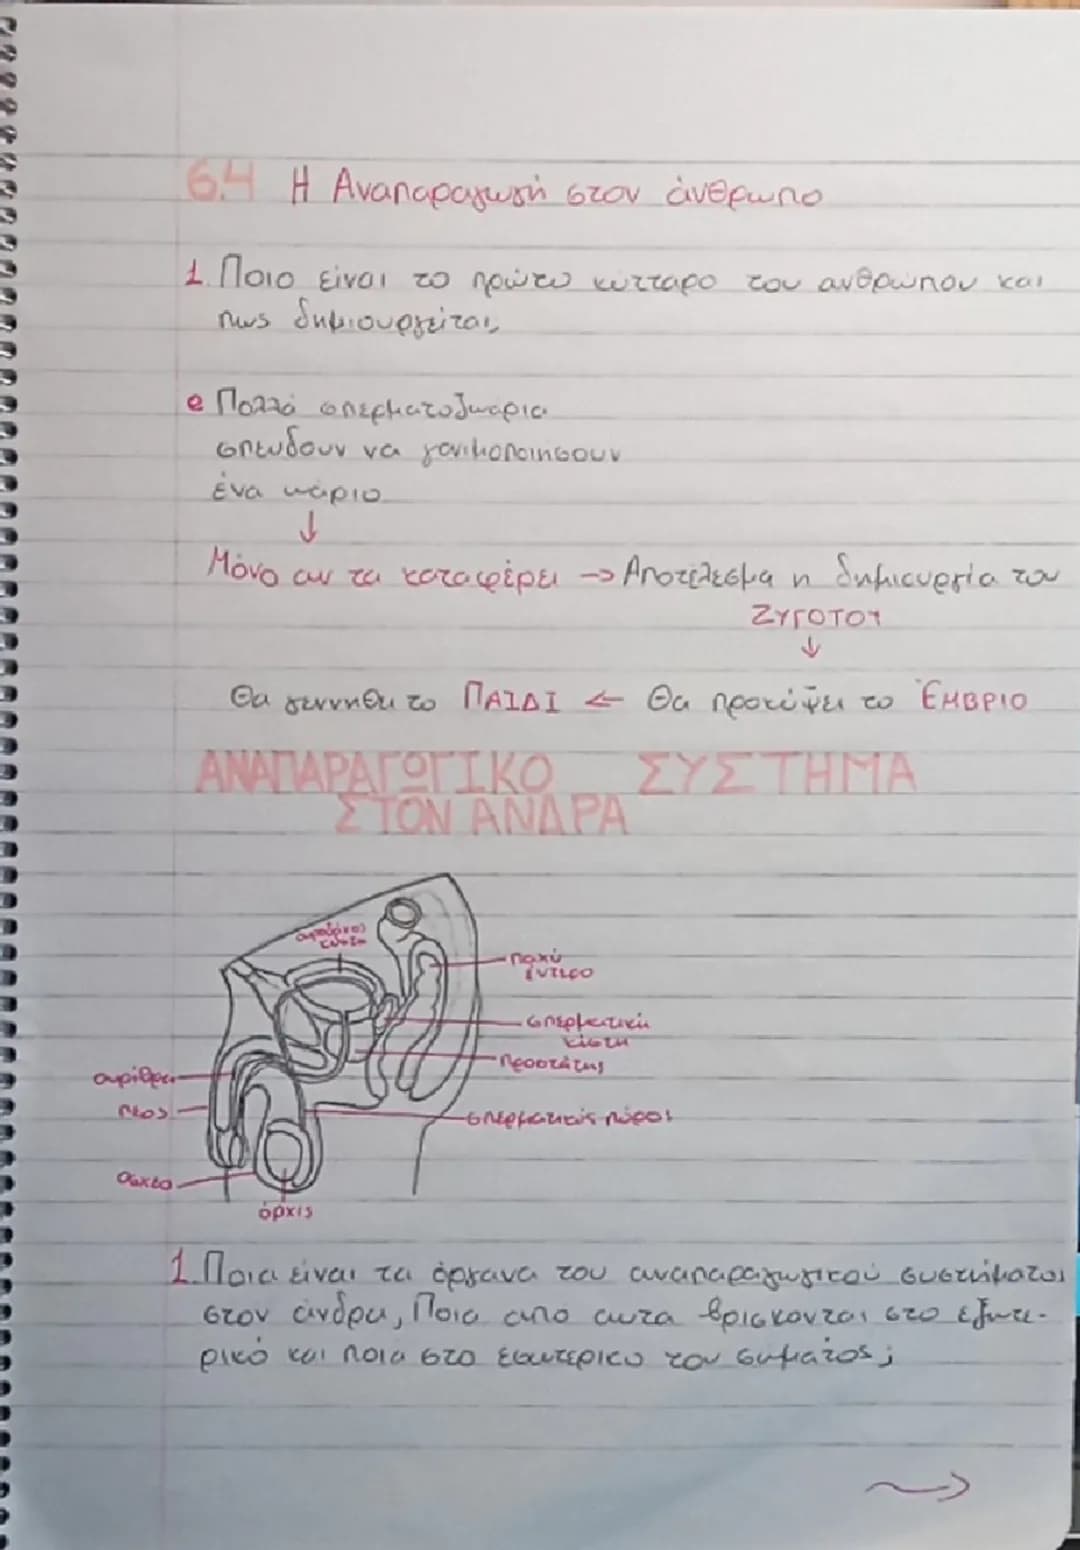 6.4 Η Αναπαραγωγή στον άνθρωπο
1. Ποιο είναι το πρώτο κύτταρο του ανθρώπου και
πως δημιουργείται;
• Πολλά σπερματοζωάρια
σπευδουν να γονιμοποιήσουν
ένα ωάριο
↓
Μόνο αν τα καταφέρει → Αποτέλεσμα η δημιουργία του
ΖΥΓΟΤΟΥ
↓
Θα γεννηθει το ΠΑΙΔΙ ← Θα προκύψει το ΈΜΒΡΙΟ
ΑΝΑΠΑΡΑΓΩΓΙΚΟ ΣΥΣΤΗΜΑ
ΣΤΟΝ ΑΝΔΡΑ
κύστη
παχύ
έντερο
σπερματική
κύστη
προστάτης
ουρίθρα
πέος
σπερματικός πόρος
όσχεο
όρχις
1. Ποια είναι τα όργανα του αναπαραγωγικού συστήματος
στον άνδρα, Ποια απο αυτα βρισκονται στο εξωτε-
ρικό και ποια στο εσωτερικο του σωματος;